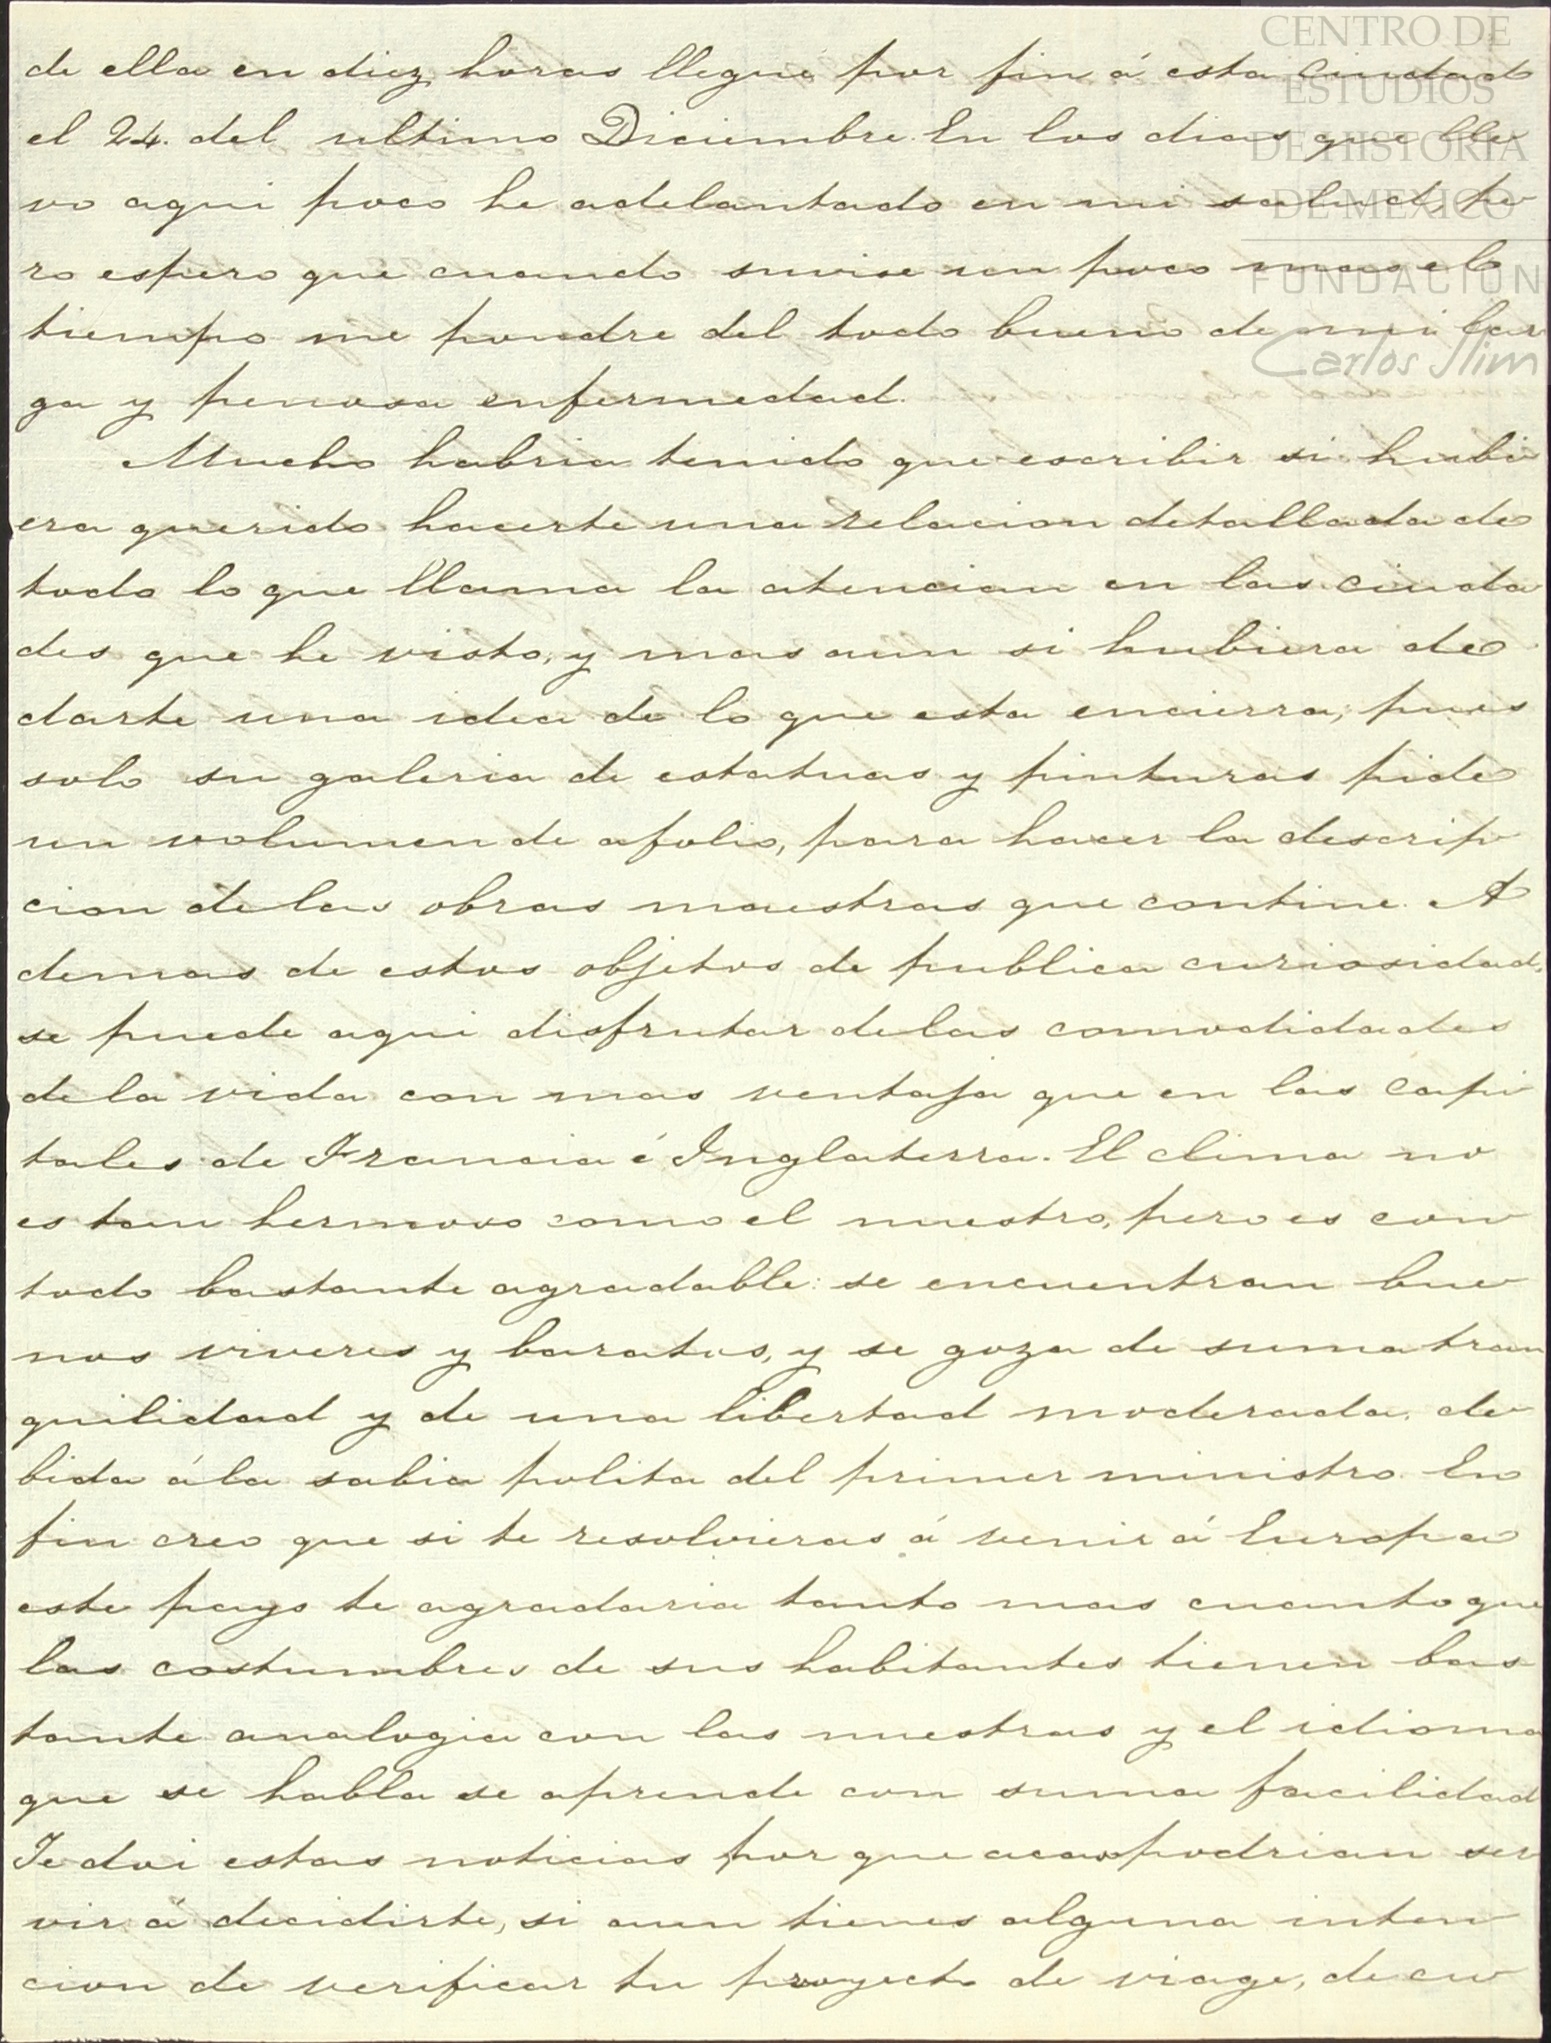 de ella en diez horas llegué por fin á esta ciudad
el 24. del ultimo Diciembre. En los dias que lle
vo aqui poco he adelantado en mi salud, pe
ro espero que cuando suvise un poco mas el
tiempo me pondre del todo bueno de mi lar
ga y penosa enfermedad.
Mucho habria tenido que escribir si hubi
era querido hacerte una relacion detallada de
todo lo que llama la atencion en las ciuda
des que he visto, y mas aun si hubiera de
darte una idea de lo que esta encierra; pues
solo su galeria de estatuas y pinturas pide
un volumen de afolio, para hacer la descrip
cion de las obras maestras que contine. A
demas de estos objetos de publica curiosidad,
se puede aqui disfrutar de las comodidades
de la vida con mas ventaja que en las capi
tales de Francia é Inglaterra. El clima no
es tan hermoso como el nuestro, pero es con
todo bastante agradable: se encuentran bue
nos viveres y baratos, y se goza de suma tran
quilidad y de una libertad moderada, de
bida á la sabia polita del primer ministro. En
fin creo que si te resolvieras á venir á Europa
este pays te agradaria tanto mas cuanto que
las costumbres de sus habitantes tienen bas
tante analogia con las nuestras y el idioma
que se habla se aprende con suma facilidad
Te doi estas noticias por que acaso podrian ser
vir á decidirte, si aun tienes alguna inten
cion de verificar tu proyecto de viage, de cu
CENTRO DE
ESTUDIOS
DE HISTORIA
DE MEXICO
FUNDACION
Carlos Slim